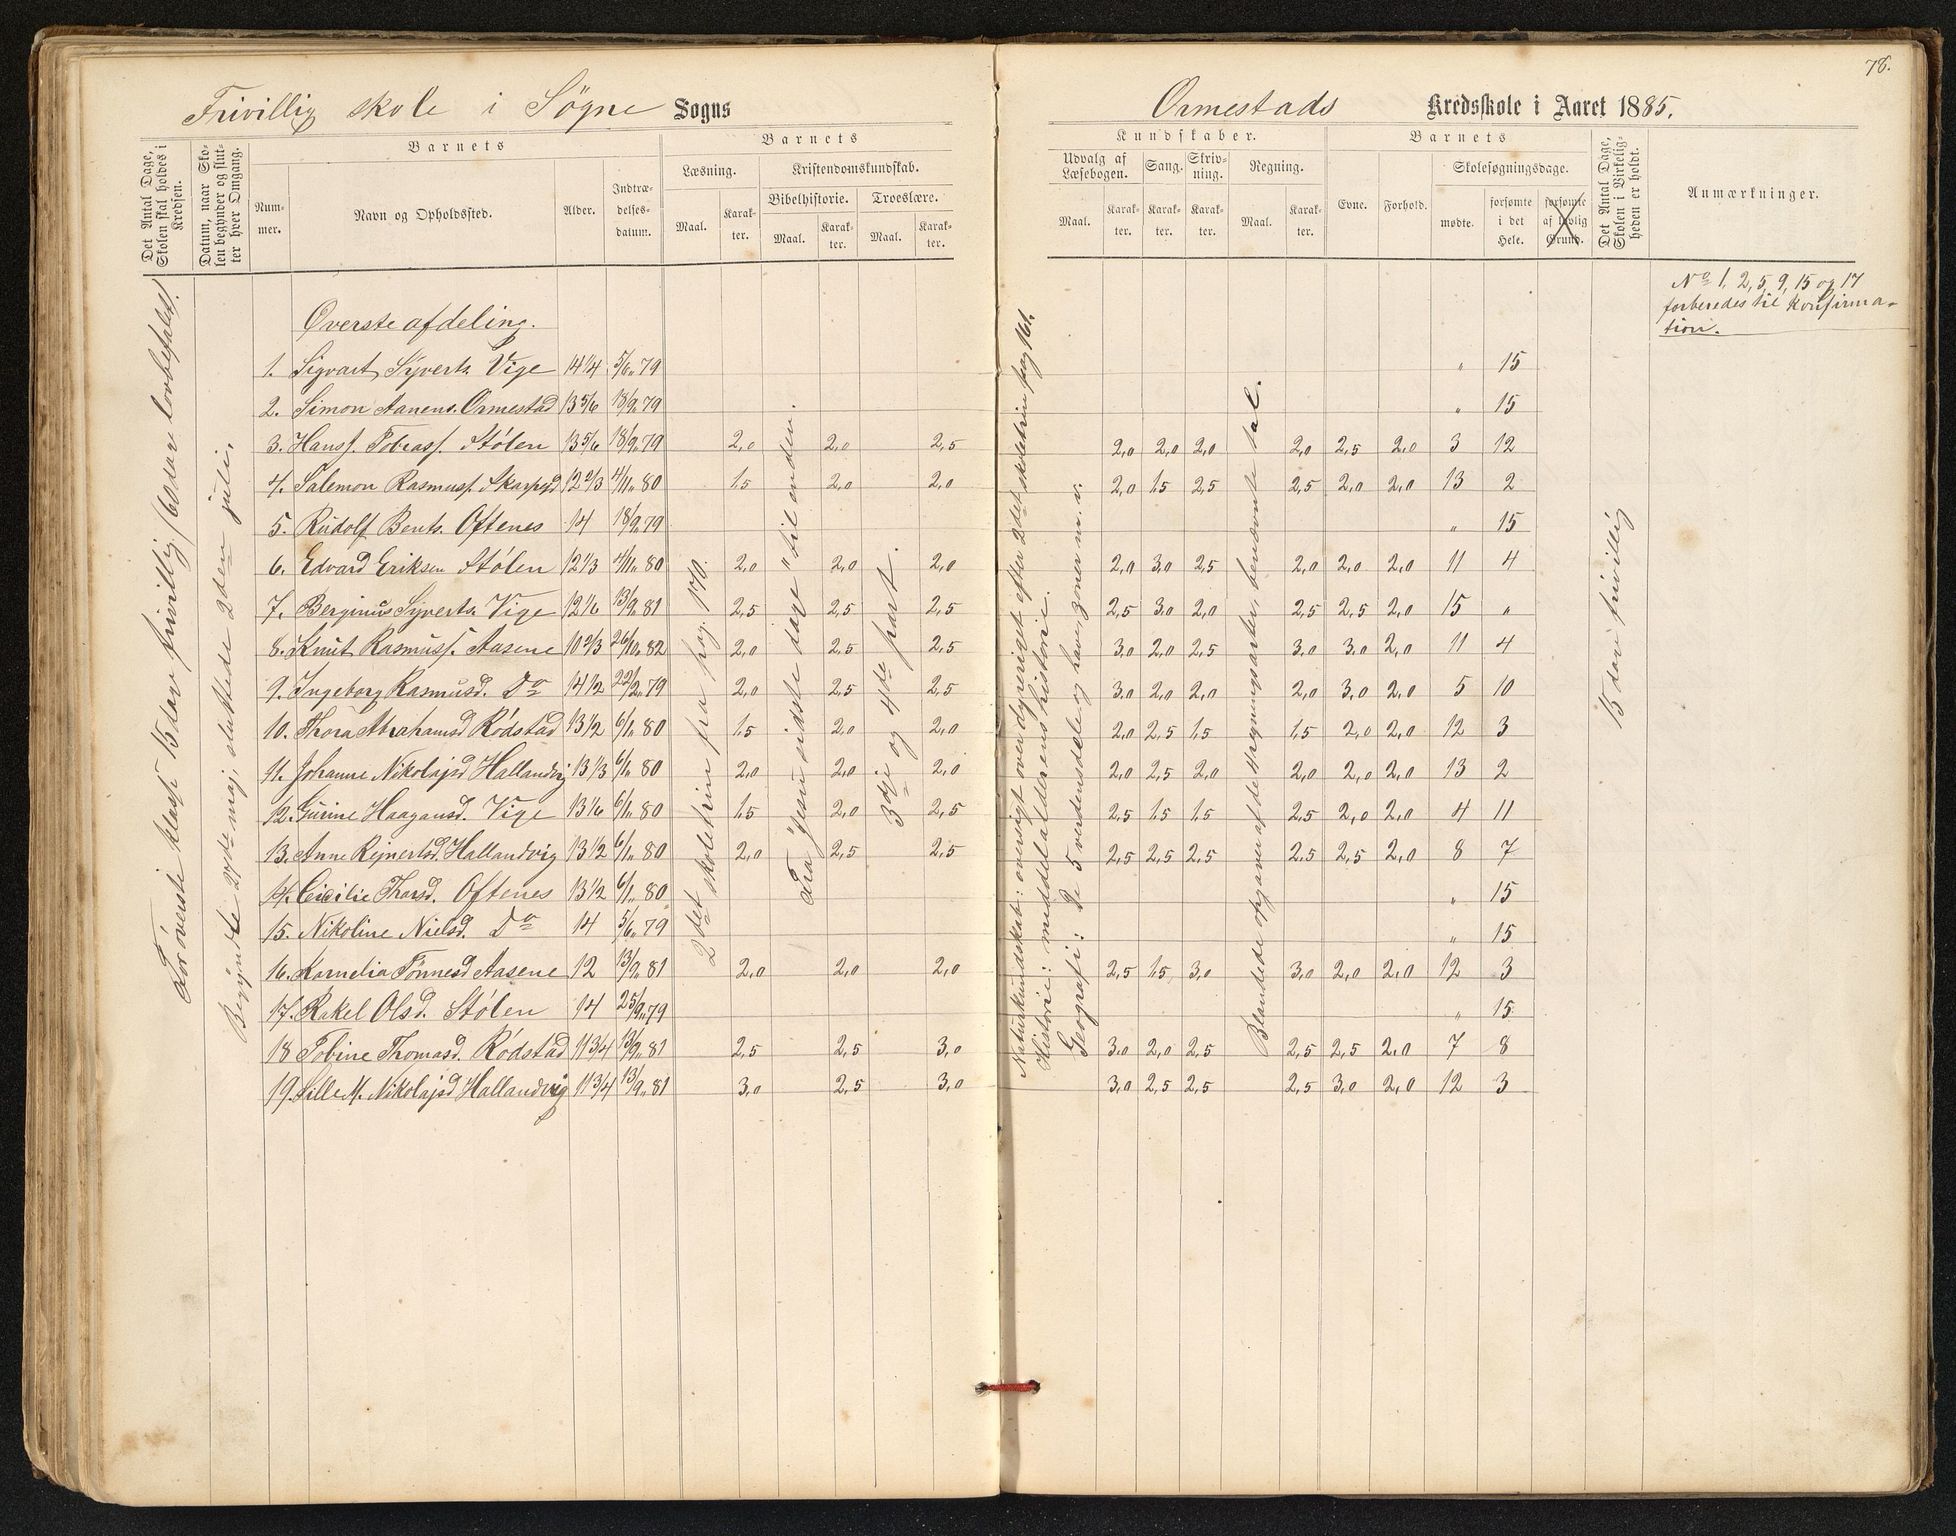 78.
Frivillig skole i Søgne Sogns
Ormestads Kredsskole i Aaret 1885.
Det Antal Dage, Skolen skal holdes i Kredsen.
Datum, naar Skolen begynder og slutter hver Omgang.
Barnets
Nummer.
Navn og Opholdssted.
Alder.
Indtrædelsesdatum.
Barnets
Læsning.
Kristendomskundskab.
Bibelhistorie.
Troeslære.
Maal.
Karakter.
Maal.
Karakter.
Maal.
Karakter.
Kundskaber.
Udvalg af Læsebogen.
Sang.
Skrivning.
Regning.
Maal.
Karakter.
Karakter.
Karakter.
Maal.
Karakter.
Barnets
Evne.
Forhold.
Skolesøgningsdage.
mødte.
forsømte i det Hele.
forsømte af lovlig Grund.
Det Antal Dage, Skolen i Virkeligheden er holdt.
Anmærkninger.
For øverste klasse 15 dav frivillig (60 dav lovbefalet).
Begyndte 27de maj, sluttede 2den juli.
2det skoletrin fra pag. 170.
Fra "Jesu sidste dage" til enden.
3dje og 4de part.
Naturkundskab: oversigt over dyreriget efter 2det skoletrin pag 161.
Historie: middelalderens historie.
Geografi: De 5 verdensdele og hav, zoner m. v.
Blandede opgaver af de 4 regningsarter, benævnte tal.
15 dav frivillig
No 1, 2, 5, 9, 15 og 17
forberedes til konfirma-
tion.
Øverste afdeling.
1. Sigvart Syverts. Vige 14 1/4 5/6.. 79 " 15
2. Simon Aanens. Ormestad 13 5/6 18/9.. 79 " 15
3. Hans J. Tobiass. Stólen 13 5/6 18/9.. 79 2,0 2,0 2,5 2,0 2,0 2,0 2,0 2,5 2,0 3 12
4. Salemon Rasmuss. Skarpejd 12 2/3 4/11.. 80 1,5 2,0 2,0 2,0 1,5 2,5 2,5 2,0 2,0 13 2
5. Rudolf Bents. Oftenes 14 18/9.. 79 " 15
6. Edvard Eriksen Stólen 12 1/3 4/11.. 80 2,0 2,0 2,0 2,0 3,0 2,5 2,0 2,0 2,0 11 4
7. Berginus Syverts. Vige 12 1/6 13/9.. 81 2,5 2,5 2,5 2,5 3,0 2,0 2,5 2,5 2,0 15 "
8. Knut Rasmuss. Aasene 10 2/3 26/10.. 82 2,0 2,5 2,5 3,0 2,0 2,5 3,0 3,0 2,0 11 4
9. Ingeborg Rasmusd. Do 14 1/2 22/2.. 79 2,0 2,5 2,5 3,0 2,0 2,0 2,0 3,0 2,0 5 10
10. Thora Abrahamsd Ródstad 13 1/2 6/1.. 80 1,5 2,0 2,0 2,0 2,5 1,5 1,5 2,0 2,0 12 3
11. Johanne Nikolajsd Hallandvig 13 1/3 6/1.. 80 2,0 2,0 2,0 2,0 2,5 2,0 2,0 2,0 2,0 13 2
12. Gurine Haagansd. Vige 13 1/6 6/1.. 80 1,5 2,0 2,5 2,5 1,5 1,5 2,5 2,0 2,0 4 11
13. Anne Rejnertsd. Hallandvig 13 1/2 6/1.. 80 2,0 2,5 2,5 2,5 2,5 2,5 2,5 2,5 2,0 8 7
14. Cicilie Thorsd. Oftenes 13 1/2 6/1.. 80 " 15
15. Nikoline Nielsd. Do 14 5/6.. 79 " 15
16. Kornelia Tönnesd Aasene 12 13/9.. 81 2,0 2,0 2,0 2,5 1,5 3,0 3,0 2,0 2,0 12 3
17. Rakel Olsd. Stólen 14 25/9.. 79 " 15
18 Tobine Thomasd. Ródstad 11 3/4 13/9.. 81 2,5 2,5 3,0 3,0 2,0 2,5 2,5 2,5 2,0 7 8
19. Sille M. Nikolajsd Hallandvig 11 3/4 13/9.. 81 3,0 2,5 3,0 3,0 2,5 2,5 2,5 3,0 2,0 12 3